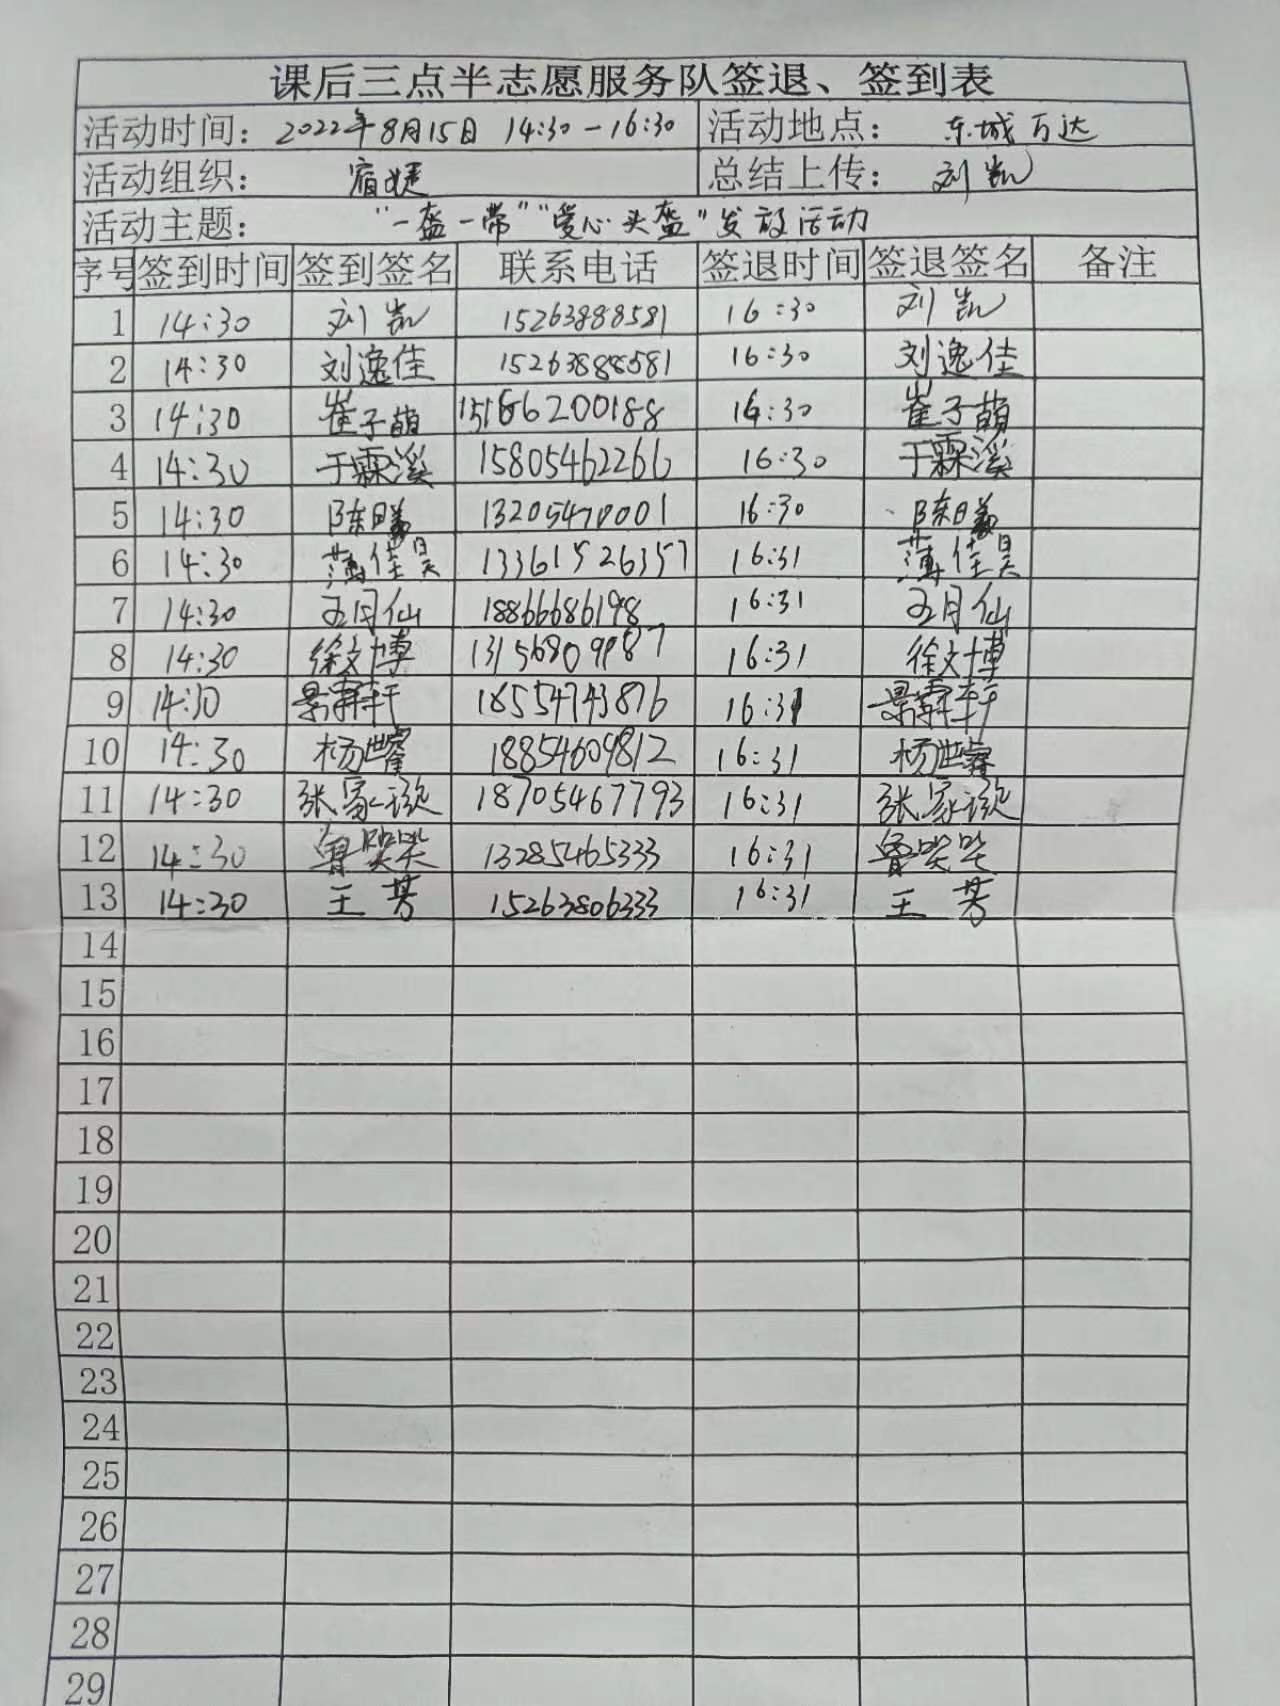 课后三点半志愿服务队签退、签到表
活动时间：2022年8月15日 14:30-16:30 活动地点：东城万达
活动组织：宿婕 总结上传：刘凯
活动主题：“一盔一带”“爱心头盔”发放活动
序号 签到时间 签到签名 联系电话 签退时间 签退签名 备注
1 14:30 刘凯 15263888581 16:30 刘凯
2 14:30 刘逸佳 15263888581 16:30 刘逸佳
3 14:30 崔子萌 15166200188 16:30 崔子萌
4 14:30 于霖溪 15805462266 16:30 于霖溪
5 14:30 陈曦 13205470001 16:30 陈曦
6 14:30 薄佳昊 13361526357 16:31 薄佳昊
7 14:30 月仙 18866686198 16:31 月仙
8 14:30 徐文博 13156809987 16:31 徐文博
9 14:30 景霖轩 18554743876 16:31 景霖轩
10 14:30 杨世睿 18854609812 16:31 杨世睿
11 14:30 张家 18705467793 16:31 张家
12 14:30 鲁笑笑 13285465333 16:31 鲁笑笑
13 14:30 王芳 15263806333 16:31 王芳
14
15
16
17
18
19
20
21
22
23
24
25
26
27
28
29